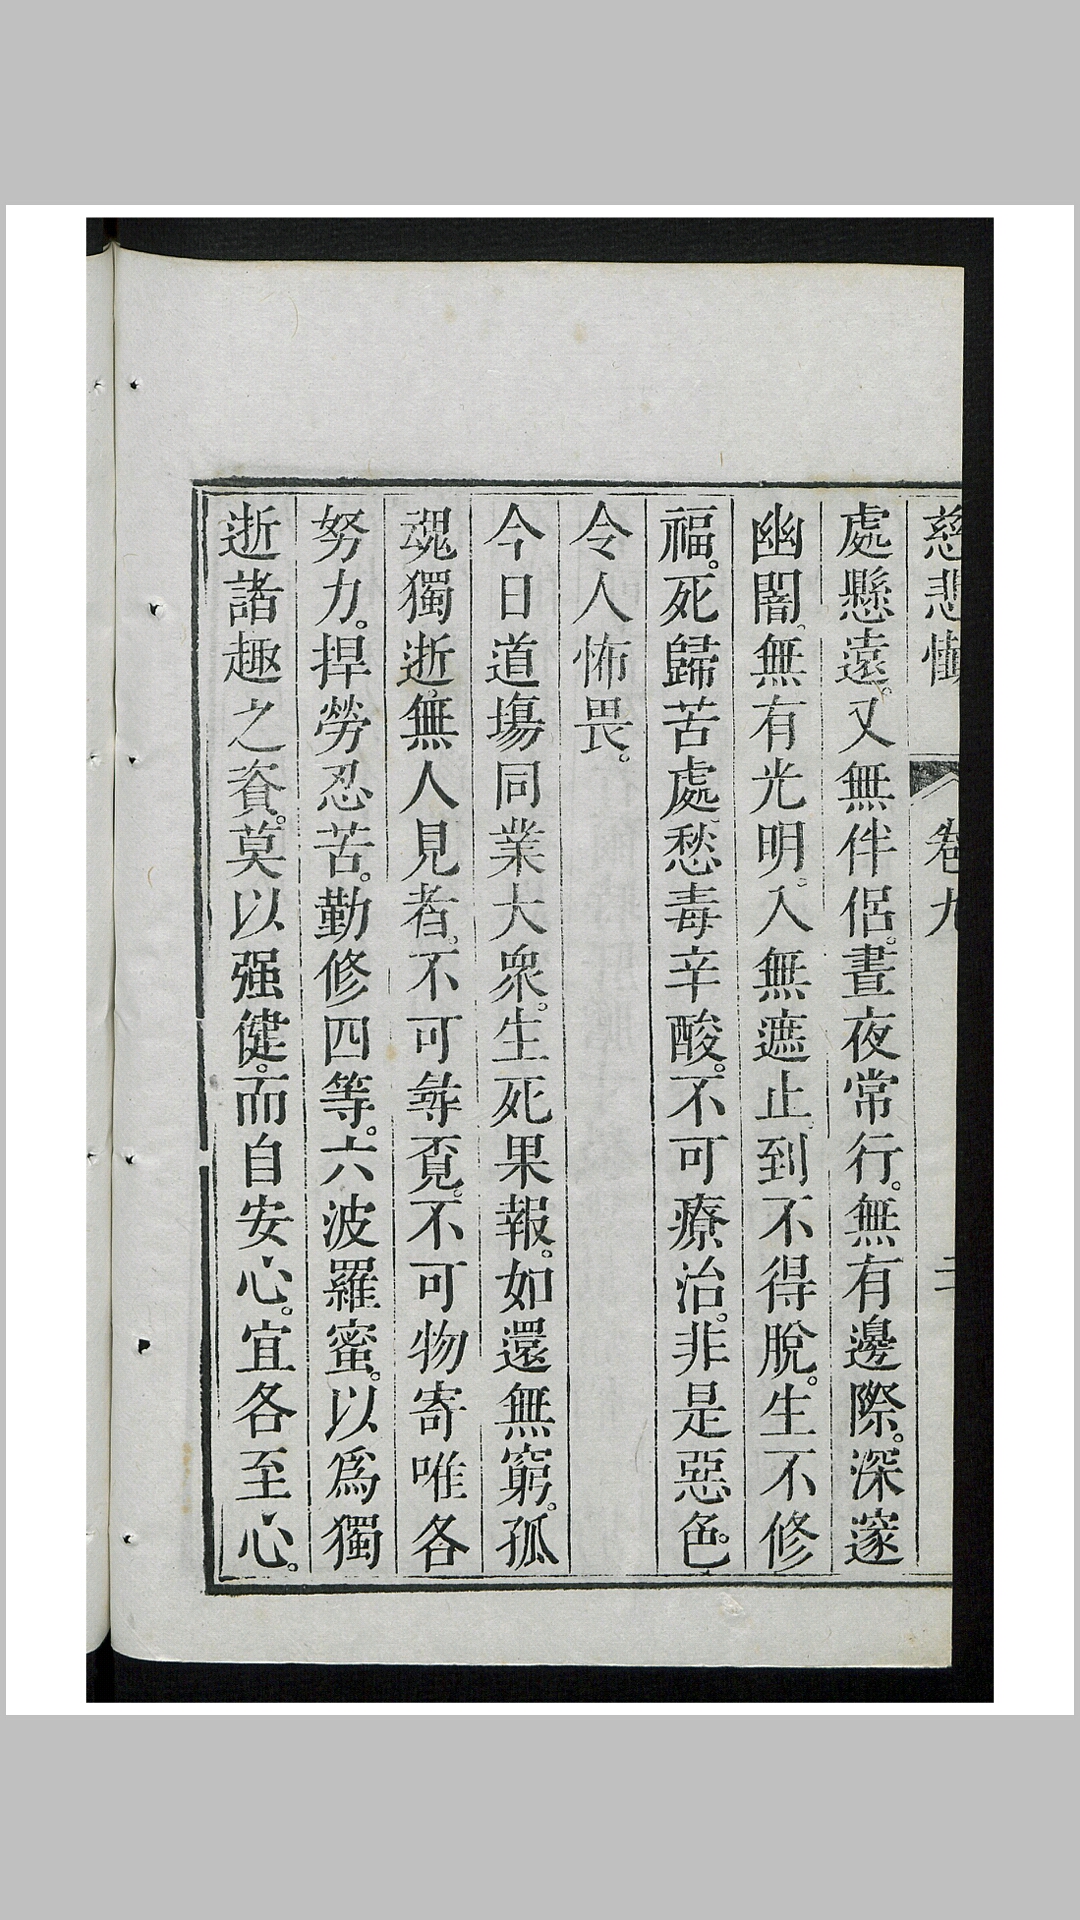 慈悲懺 卷九 二
處懸遠。又無伴侶。晝夜常行。無有邊際。深邃
幽闇。無有光明。入無遮止。到不得脫。生不修
福。死歸苦處。愁毒辛酸。不可療治。非是惡色。
令人怖畏。
今日道場同業大衆。生死果報。如還無窮。孤
魂獨逝。無人見者。不可㝷覔。不可物寄唯各
努力。捍勞忍苦。勤修四等。六波羅蜜。以爲獨
逝諸趣之資。莫以强健。而自安心。宜各至心。